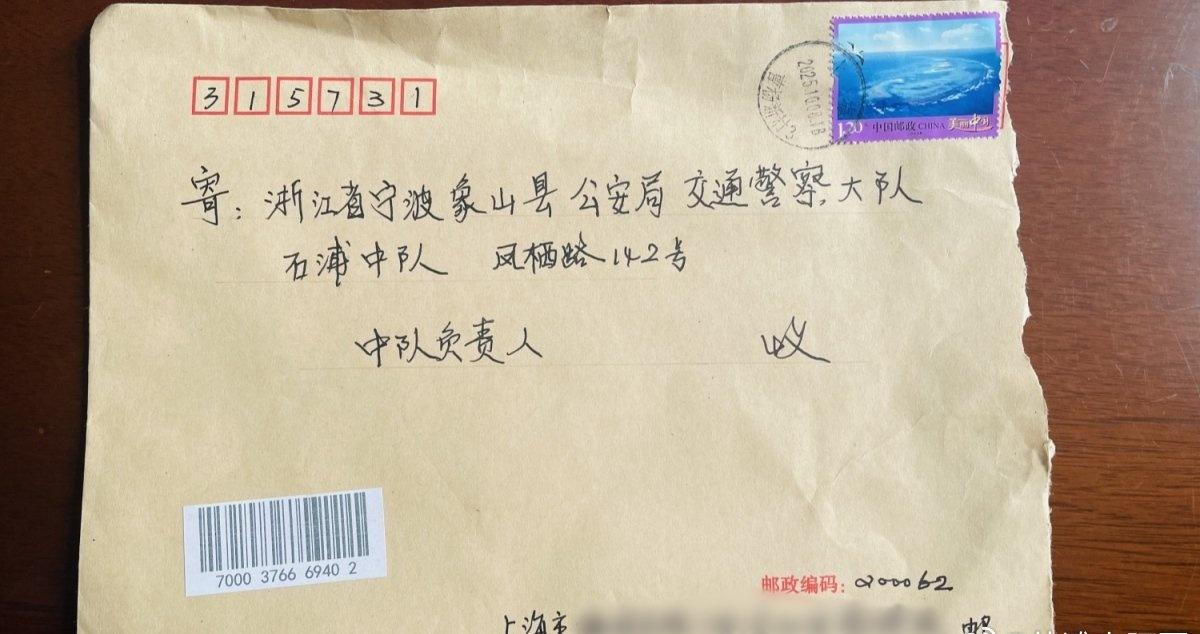 315731
2025.10.08.18
1.20 中国邮政 CHINA 美丽中国
寄：浙江省宁波象山县公安局交通警察大队
石浦中队 凤栖路142号
中队负责人 收
7000 3766 6940 2
邮政编码：200062
上海市